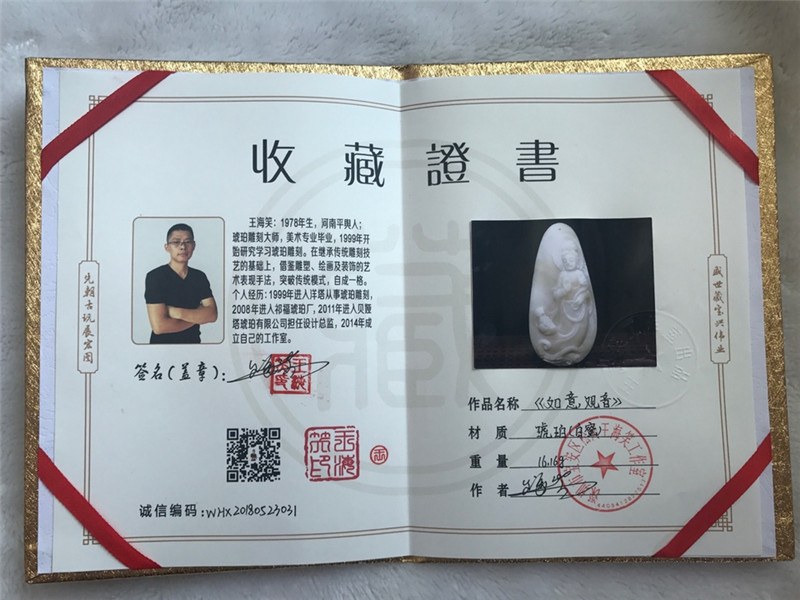 收藏證書
王海笑：1978年生，河南平舆人；
琥珀雕刻大师，美术专业毕业，1999年开
始研究学习琥珀雕刻。在继承传统雕刻技
艺的基础上，借鉴雕塑、绘画及装饰的艺
术表现手法，突破传统模式，自成一格。
个人经历：1999年进入洋塔从事琥珀雕刻，
2008年进入祁福琥珀厂，2011年进入贝娅
塔琥珀有限公司担任设计总监，2014年成
立自己的工作室。
签名(盖章)：
诚信编码：WHX20180523031
作品名称 《如意观音》
材 质 琥珀(白蜜)
重 量 16.16g
作 者
盛世藏宝兴伟业